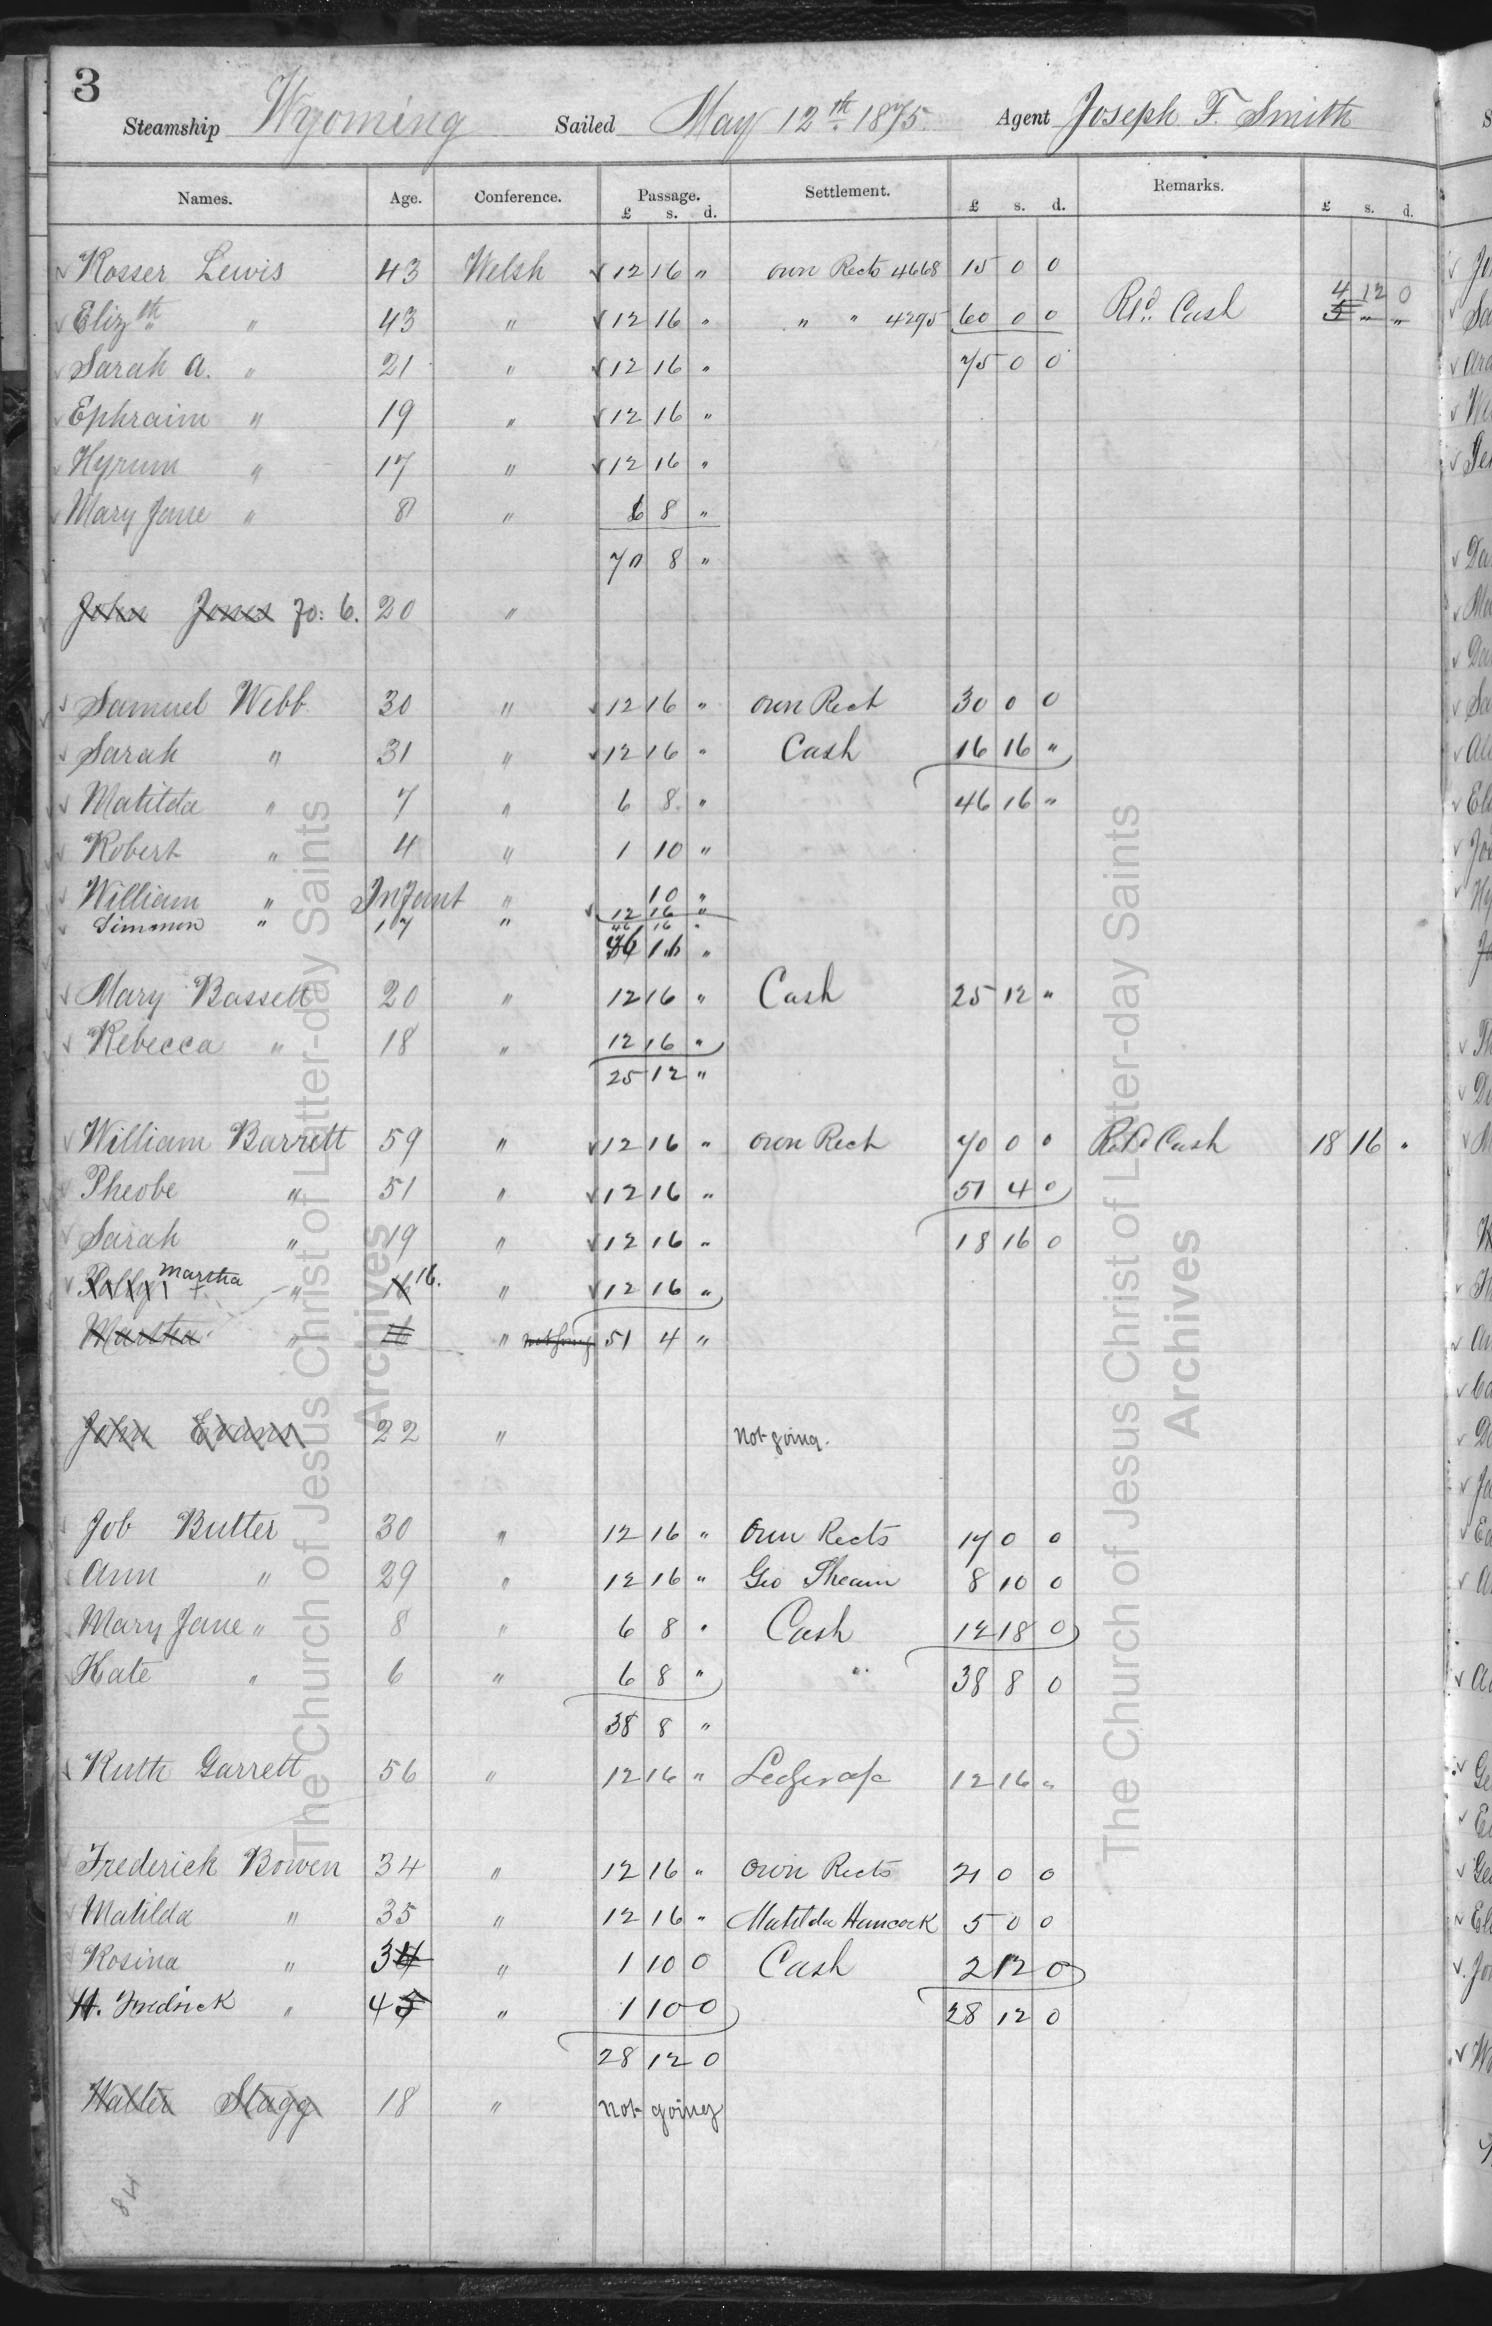 3
Steamship Wyoming Sailed May 12th 1875 Agent Joseph F. Smith
Names. Age. Conference. Passage. Settlement. Remarks.
£ s. d. £ s. d. £ s. d.
Rosser Lewis 43 Welsh 12 16 " own Rects 4668 15 0 0
Elizth " 43 " 12 16 " " " 4295 60 0 0 Rd. Cash 4 12 0
5 " "
Sarah A. " 21 " 12 16 " 75 0 0
Ephraim " 19 " 12 16 "
Hyrum " 17 " 12 16 "
Mary Jane " 8 " 6 8 "
70 8 "
John Jones fo: 6. 20 "
Samuel Webb 30 " 12 16 " own Rect 30 0 0
Sarah " 31 " 12 16 " Cash 16 16 "
Matilda " 7 " 6 8 " 46 16 "
Robert " 4 " 1 10 "
William " Infant " 10 "
Simmon " 17 " 12 16 "
46 16 "
Mary Bassett 20 " 12 16 " Cash 25 12 "
Rebecca " 18 " 12 16 "
25 12 "
William Barrett 59 " 12 16 " own Rect 70 0 0 Rd Cash 18 16 "
Pheobe " 51 " 12 16 " 51 4 0
Sarah " 19 " 12 16 " 18 16 0
Polly Martha " 16. " 12 16 "
Martha " " not going 51 4 "
John Evans 22 " Not going.
Job Butter 30 " 12 16 " Own Rects 17 0 0
Ann " 29 " 12 16 " Geo 8 10 0
Mary Jane " 8 " 6 8 " Cash 12 18 0
Kate " 6 " 6 8 " " 38 8 0
38 8 "
Ruth Garrett 56 " 12 16 " Ledger a/c 12 16 "
Frederick Bowen 34 " 12 16 " own Rects 21 0 0
Matilda " 35 " 12 16 " Matilda Hancock 5 0 0
Rosina " 3 " 1 10 0 Cash 2 12 0
H. Fredrick " 4 " 1 10 0 28 12 0
28 12 0
Walter Stagg 18 " Not going
84
The Church of Jesus Christ of Latter-day Saints
Archives
The Church of Jesus Christ of Latter-day Saints
Archives